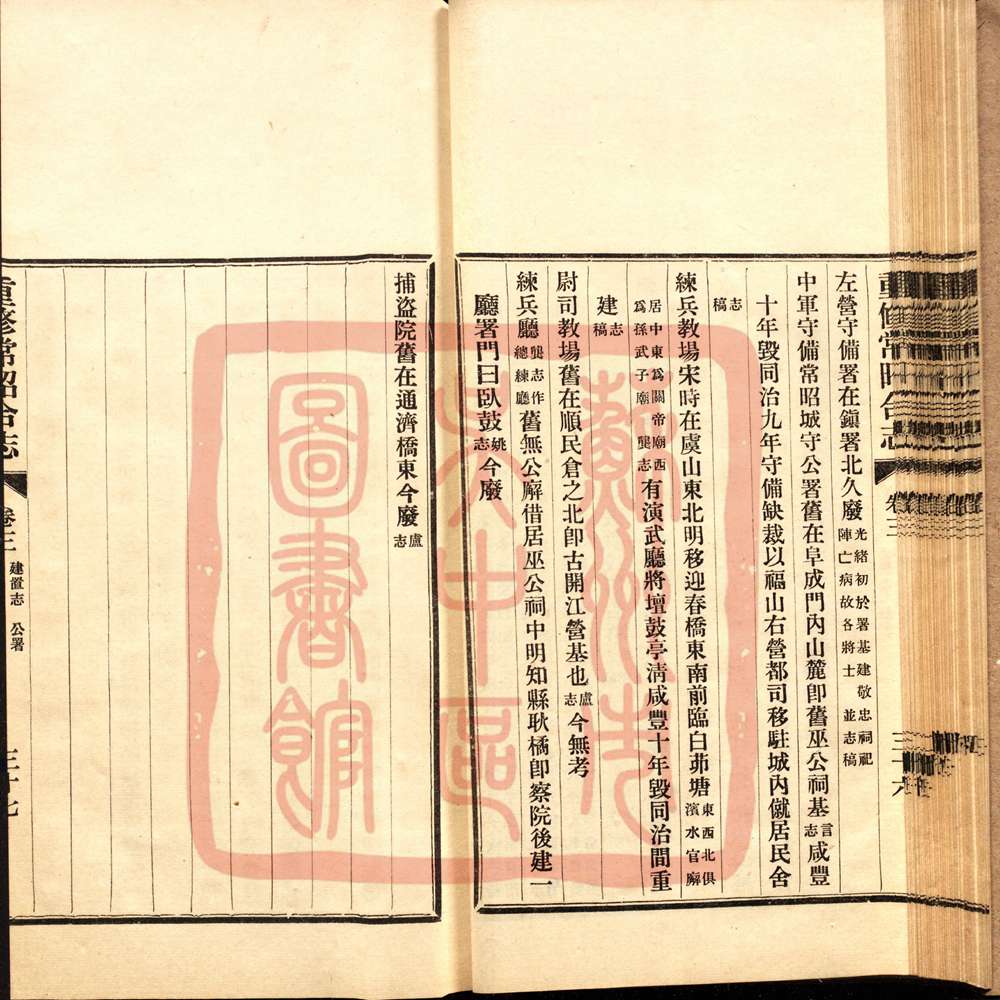 重修常昭合志
卷三
三十六
左營守備署在鎭署北久廢光緒初於署基建敬忠祠祀陣亡病故各將士並志稿
中軍守備常昭城守公署舊在阜成門內山麓卽舊巫公祠基言志咸豐
十年毀同治九年守備缺裁以福山右營都司移駐城內僦居民舍
志稿
練兵教場宋時在虞山東北明移迎春橋東南前臨白茆塘東西北俱濱水官廨
居中東爲關帝廟西爲孫武子廟龔志有演武廳將壇鼓亭淸咸豐十年毀同治間重
建志稿
尉司教場舊在順民倉之北卽古開江營基也盧志今無考
練兵廳龔志作總練廳舊無公廨借居巫公祠中明知縣耿橘卽察院後建一
廳署門曰臥鼓姚志今廢
捕盜院舊在通濟橋東今廢盧志
重修常昭合志
卷三
建置志 公署
三十七
蘇州市
吳中區
圖書館